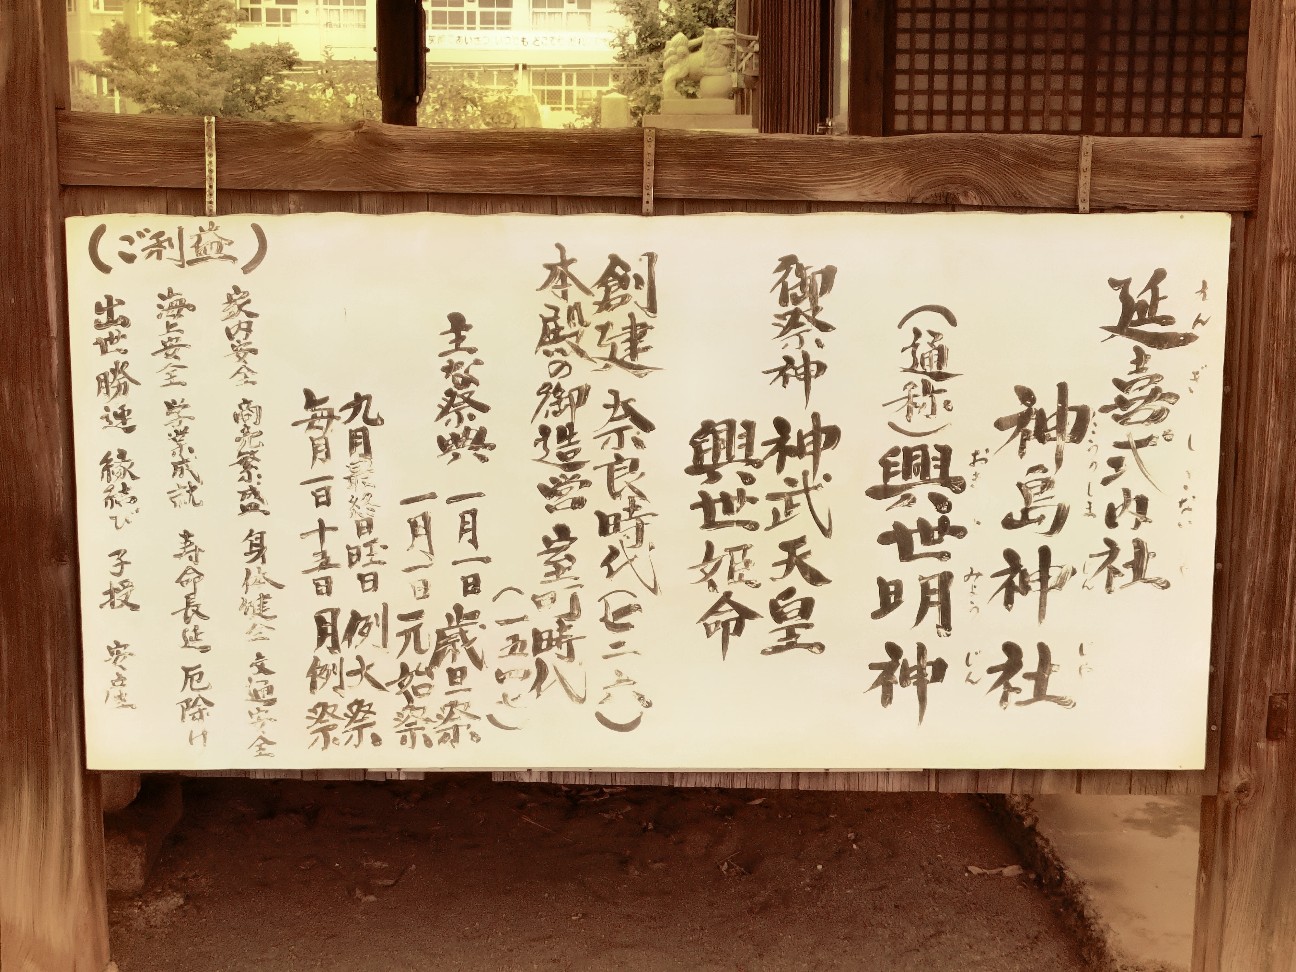 延喜式内社
えんぎしきないしゃ
神島神社
こうのしま
じんじゃ
(通称)興世明神
おきよ
みょうじん
御祭神 神武天皇
興世姫命
創建 奈良時代(七三六)
本殿の御造営 室町時代
(一五四七)
主な祭典
一月一日 歳旦祭
一月一日 元始祭
九月最終日曜日 例大祭
毎月一日十五日 月例祭
(ご利益)
家内安全 商売繁盛 身体健全 交通安全
海上安全 学業成就 寿命長延 厄除け
出世勝運 縁結び 子授 安産